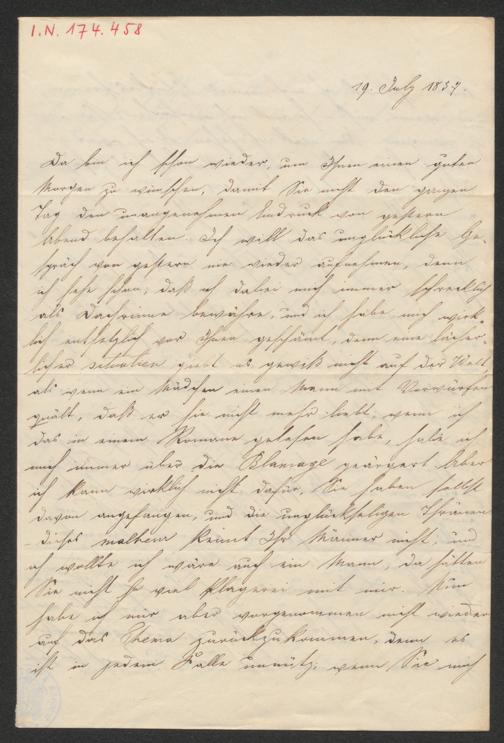 I.N. 174.458
19. July 1837
Da bin ich schon wieder, um Ihnen einen guten
Morgen zu wünschen, damit Sie nicht den ganzen
Tag den unangenehmen Eindruck von gestern
Abend behalten. Ich will das unglückliche Ge-
spräch von gestern nie wieder aufnehmen, denn
ich sehe schon, daß ich dabei mich immer schrecklich
als bewähre, und ich habe mich wirk-
lich entsetzlich vor Ihnen geschämt, denn eine lächer-
lichere situation giebt es gewiß nicht auf der Welt
als wenn ein Mädchen einen Mann mit Vorwürfen
quält, daß er sie nicht mehr liebt, wenn ich
das in einem Romane gelesen habe, habe ich
mich immer über die Blamage geärgert. Aber
ich kann wirklich nicht dafür, Sie haben selbst
davon angefangen, und die unglückseligen Thränen
dieses malheur kennt Ihr Männer nicht, und
ich wollte ich wäre auch ein Mann, da hätten
Sie nicht so viel Plagerei mit mir. Nun
habe ich mir aber vorgenommen nicht wieder
auf das Thema zurückzukommen, denn es
ist in jedem Falle unnütz, wenn Sie mich